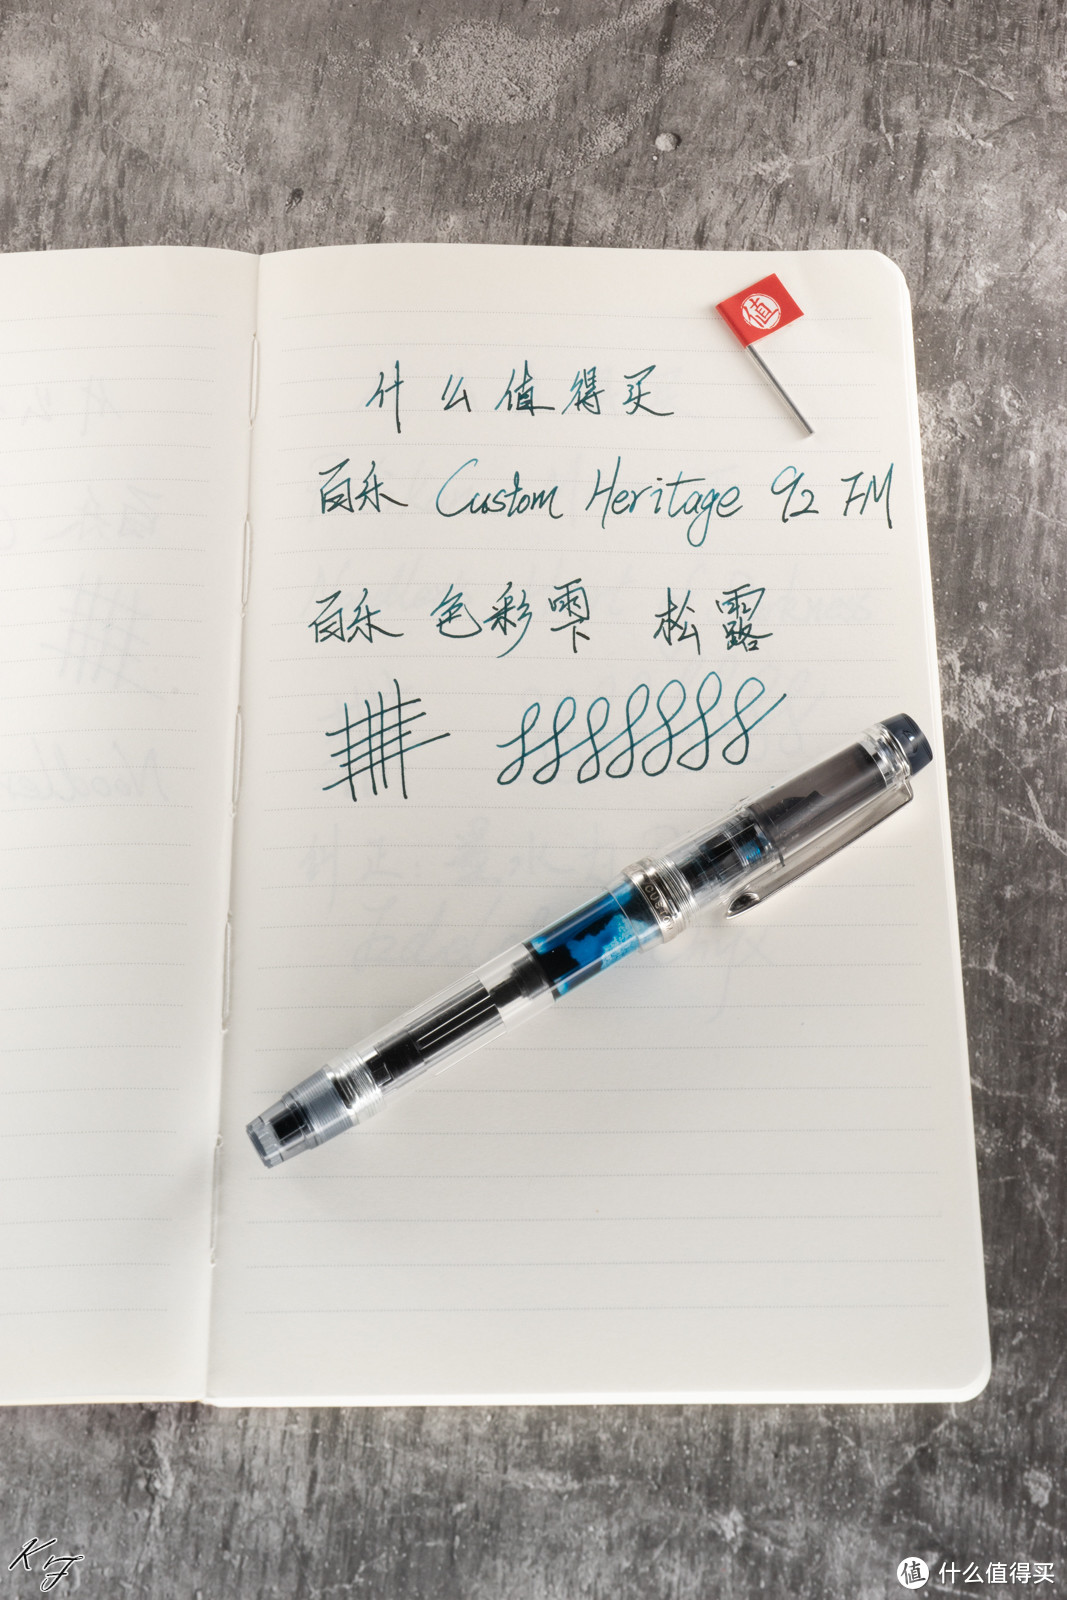 值
什么值得买
百乐 Custom Heritage 92 FM
百乐 色彩雫 松露
CUSTOM
KF
值 什么值得买